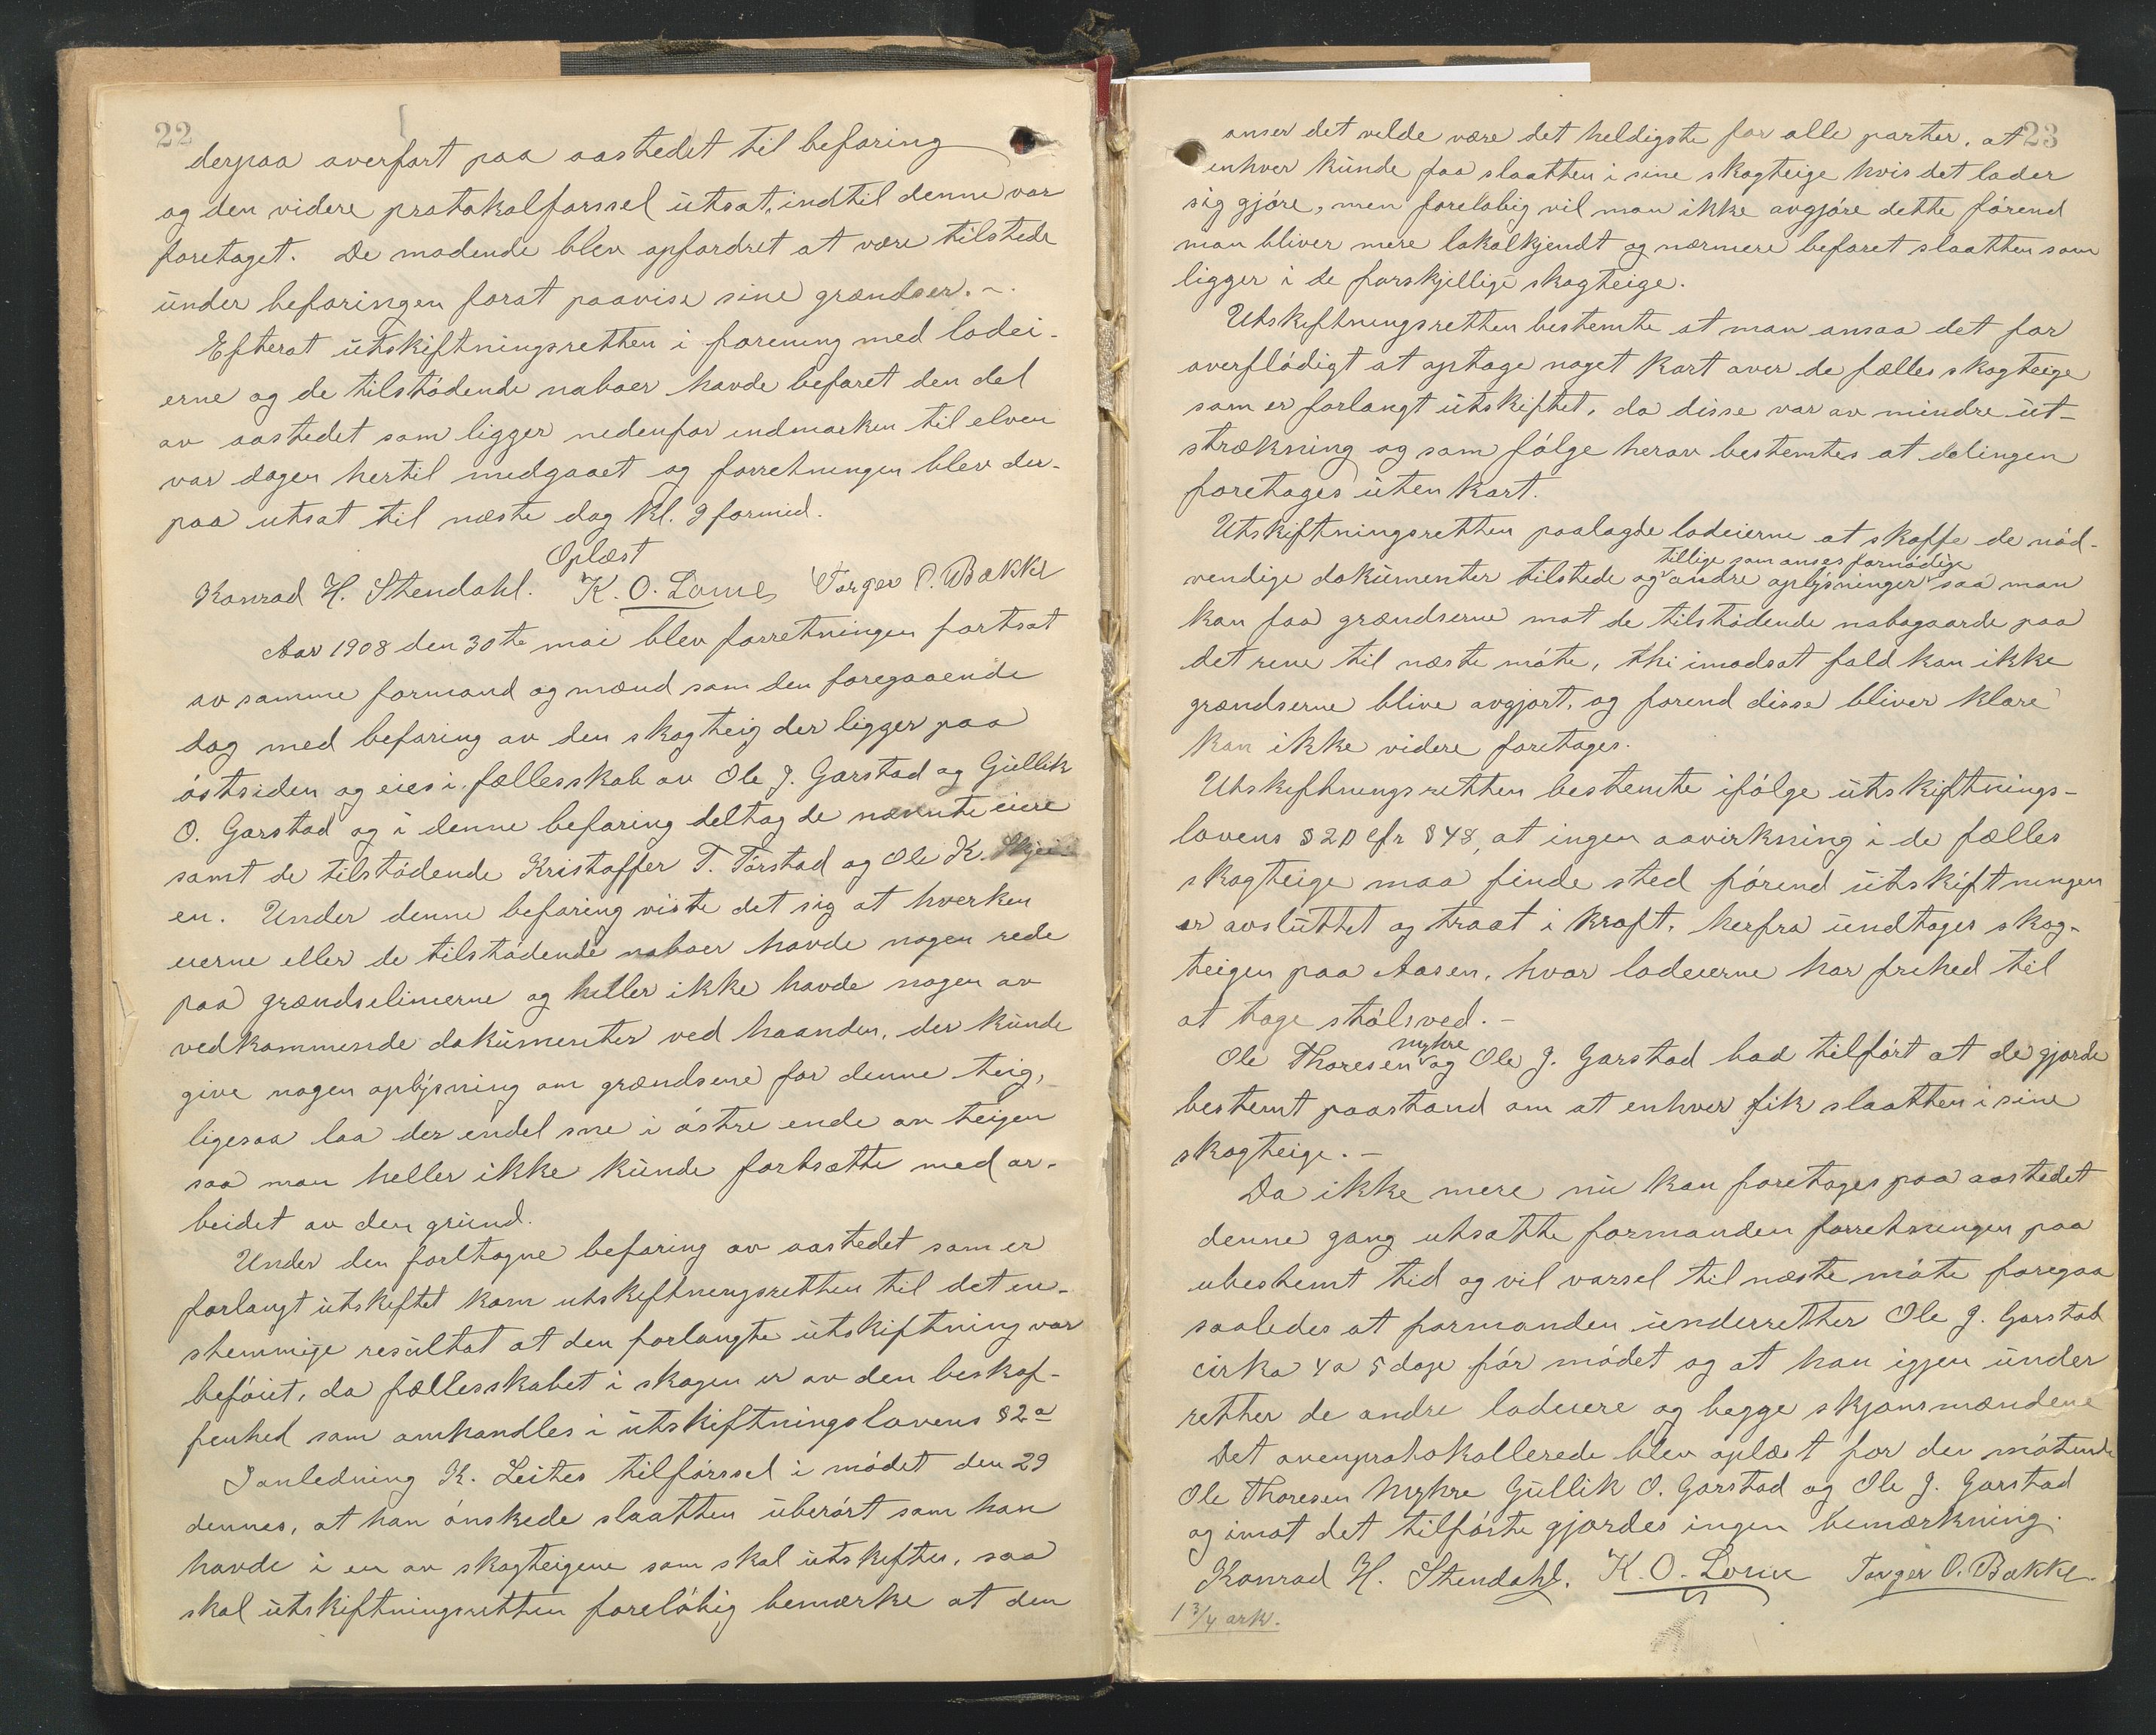 22
derpaa overført paa aastedet til befaring
og den videre protokolførssel utsat, indtil denne var
foretaget. De mødende blev opfordret at være tilstede
under befaringen forat paavise sine grændser. ~.
Efterat utskiftningsretten i forening med lodei-
erne og de tilstødende naboer havde befaret den del
av aastedet som ligger nedenfor indmarken til elven
var dagen hertil medgaaet og forretningen blev der-
paa utsat til næste dag kl. 9 formid.
Oplæst
Konrad H. Stendahl. K. O. Lome Torger O. Bakke
Aar 1908 den 30te mai blev forretningen fortsat
av samme formand og mænd som den foregaaende
dag med befaring av den skogteig der ligger paa
østsiden og eies i fællesskab av Ole J. Garstad og Gullik
O. Garstad og i denne befaring deltog de nævnte eiere
samt de tilstødende Kristoffer T. Tørstad og Ole K. Skjei-
en. Under denne befaring viste det sig at hverken
eierne eller de tilstødende naboer havde nogen rede
paa grændselinierne og heller ikke havde nogen av
vedkommende dokumenter ved haanden, der kunde
give nogen oplysning om grændsene for denne teig,
ligesaa laa der endel sne i østre ende av teigen
saa man heller ikke kunde fortsætte med ar-
beidet av den grund.
Under den foretagne befaring av aastedet som er
forlangt utskiftet kom utskiftningsretten til det en-
stemmige resultat at den forlangte utskiftning var
beføiet, da fællesskabet i skogen er av den beskaf-
fenhed som omhandles i utskiftningslovens §2a
I anledning K. Leites tilførssel i mødet den 29
dennes, at han ønskede slaatten uberørt som han
havde i en av skogteigene som skal utskiftes, saa
skal utskiftningsretten foreløbig bemærke at den
23
anser det vilde være det heldigste for alle parter, at
enhver kunde faa slaatten i sine skogteige hvis det lader
sig gjøre, men foreløbig vil man ikke avgjøre dette førend
man bliver mere lokalkjendt og nærmere befaret slaatten som
ligger i de forskjellige skogteige.
Utskiftningsretten bestemte at man ansaa det for
overflødigt at optage noget kart over de fælles skogteige
som er forlangt utskiftet, da disse var av mindre ut-
strækning og som følge herav bestemtes at delingen
foretages uten kart.
Utskiftningsretten paalagde lodeierne at skaffe de nød-
tillige som anses fornødige
vendige dokumenter tilstede og andre oplysninger saa man
kan faa grændserne mot de tilstødende nabogaarde paa
det rene til næste møte, thi imodsat fald kan ikke
grændserne blive avgjort, og førend disse bliver klare
kan ikke videre foretages.
Utskiftningsretten bestemte ifølge utskiftnings-
lovens §20 cfr §48, at ingen aavirkning i de fælles
skogteige maa finde sted førend utskiftningen
er avsluttet og traat i kraft, herfra undtages skog-
teigen paa Aasen, hvor lodeierne har frihed til
at tage stølsved. -
myhre
Ole Thoresen og Ole J. Garstad bad tilført at de gjorde
bestemt paastand om at enhver fik slaatten i sine
skogteige. -
Da ikke mere nu kan foretages paa aastedet
denne gang utsatte formanden forretningen paa
ubestemt tid og vil varsel til næste møte foregaa
saaledes at formanden underretter Ole J. Garstad
cirka 4 a 5 dage før mødet og at han igjen under
retter de andre lodeiere og begge skjønsmændene
Det ovenprotokollerede blev oplæst for den møtende
Ole Thoresen Myhre Gullik O. Garstad og Ole J. Garstad
og imot det tilførte gjordes ingen bemærkning.
Konrad H. Stendahl. K. O. Lome Torger O. Bakke.
1 3/4 ark.